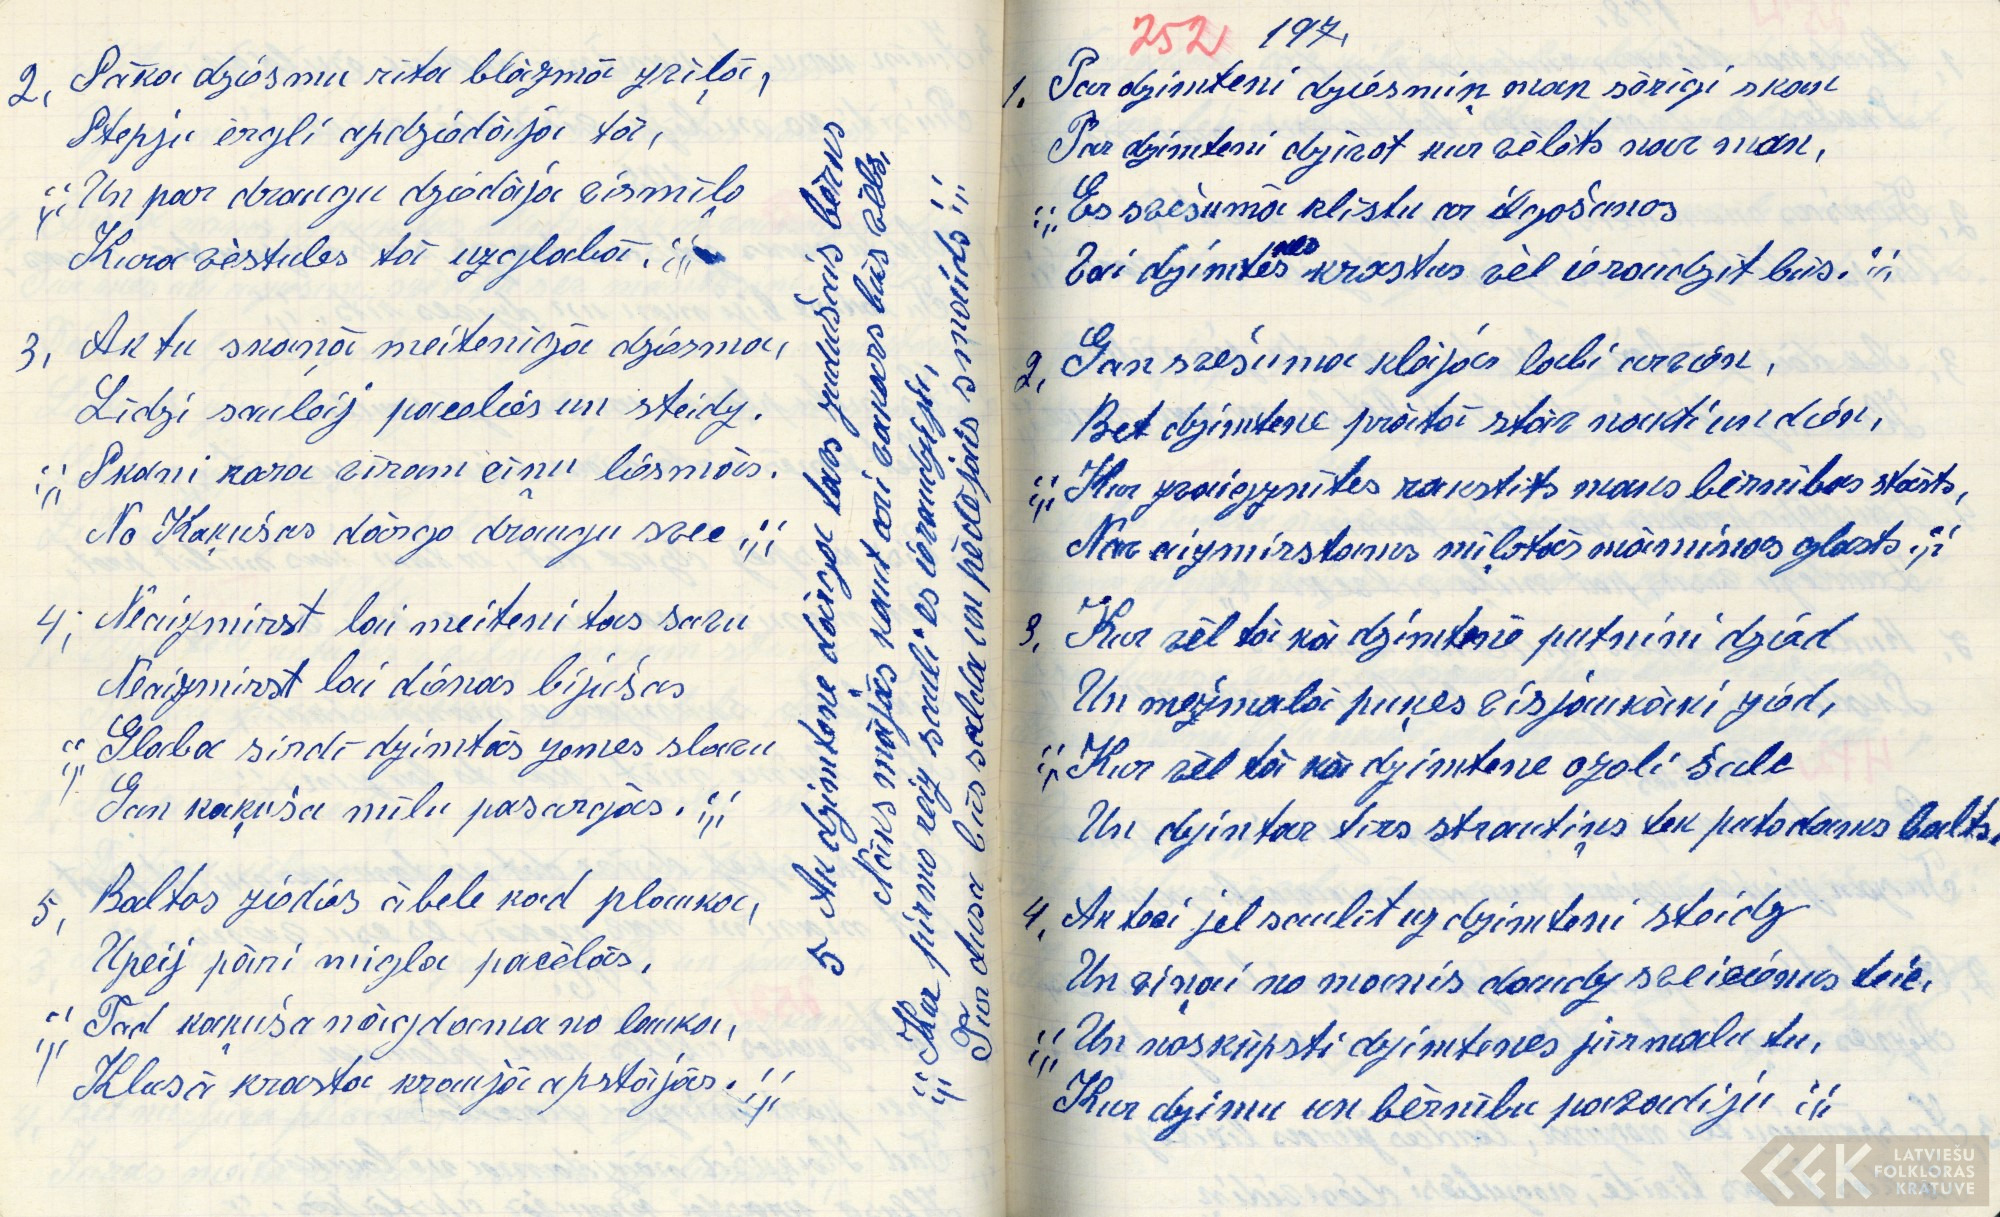 2, Sāka dziesmu rīta blāzmā zvīļā,
Stepju ērgli apdziedāja tā,
;;; Un par draugu dziedāja vismīļo
Kura vēstules tā uzglabā. ;;;
3, Ak tu skaņā meitenīgā dziesma,
Līdzi saulēij pacelies un steidz.
;;; Skani kara vīram cīnu liesmās.
No Kaķušas dārgo draugu svec ;;;
4, Neaizmirst lai meiteni tas savu
Neaizmirst lai dienas bijušas
;;; Glaba sirdī dzimtās zemes slavu
Gan kaķuša mīlu pasargās. ;;;
5, Baltos ziedos ābele kad plauka,
Upeij pāri migla pacēlās,
;;; Tad kaķuša nāigdama no lauka,
Klusā krasta kraujā apstājās. ;;;
5 Au dzimtene dārga tavs zudušais bērns
Nāks mājās kaut arī vakars būs vēls,
;;; Kar pirmo reiz sauli es ieraudzīju,
Tur dusa būs salda un pēdējais smaids ;;;
252 197,
1. Par dzimteni dziesmiņ man sērīgi skan
Par dzimteni dzīvot kur vēlēts nav man,
;;; Es svešumā klīstu ar ilgošanos
Vai dzimtenes krastus vēl ieraudzīt būs. ;;;
2, Gan svešuma klājās labi arvien,
Bet dzimtene prātā stāv nakti un dien,
;;; Kur zvaigznītēs rakstīts mans bērnības stāsts,
Nav aizmirstams mīļotās māmiņas glāsts. ;;;
3, Kur vēl tā kā dzimtenē putnini dzied
Un mežmalā puķes visjaukāki zied,
;;; Kur vēl tā kā dzimtene ozoli šalc
Un dzintar tīrs strautiņs tek putodams balts.
4, Ak teci jel saulīt uz dzimteni steidz
Un viņai no manis daudz sveicienus teic,
;;; Un noskūpsti dzimtenes jūrmalu tu,
Kur dzimu un bērnību pavadīju ;;;
LATVIEŠU
FOLKLORAS
KRĀTUVE